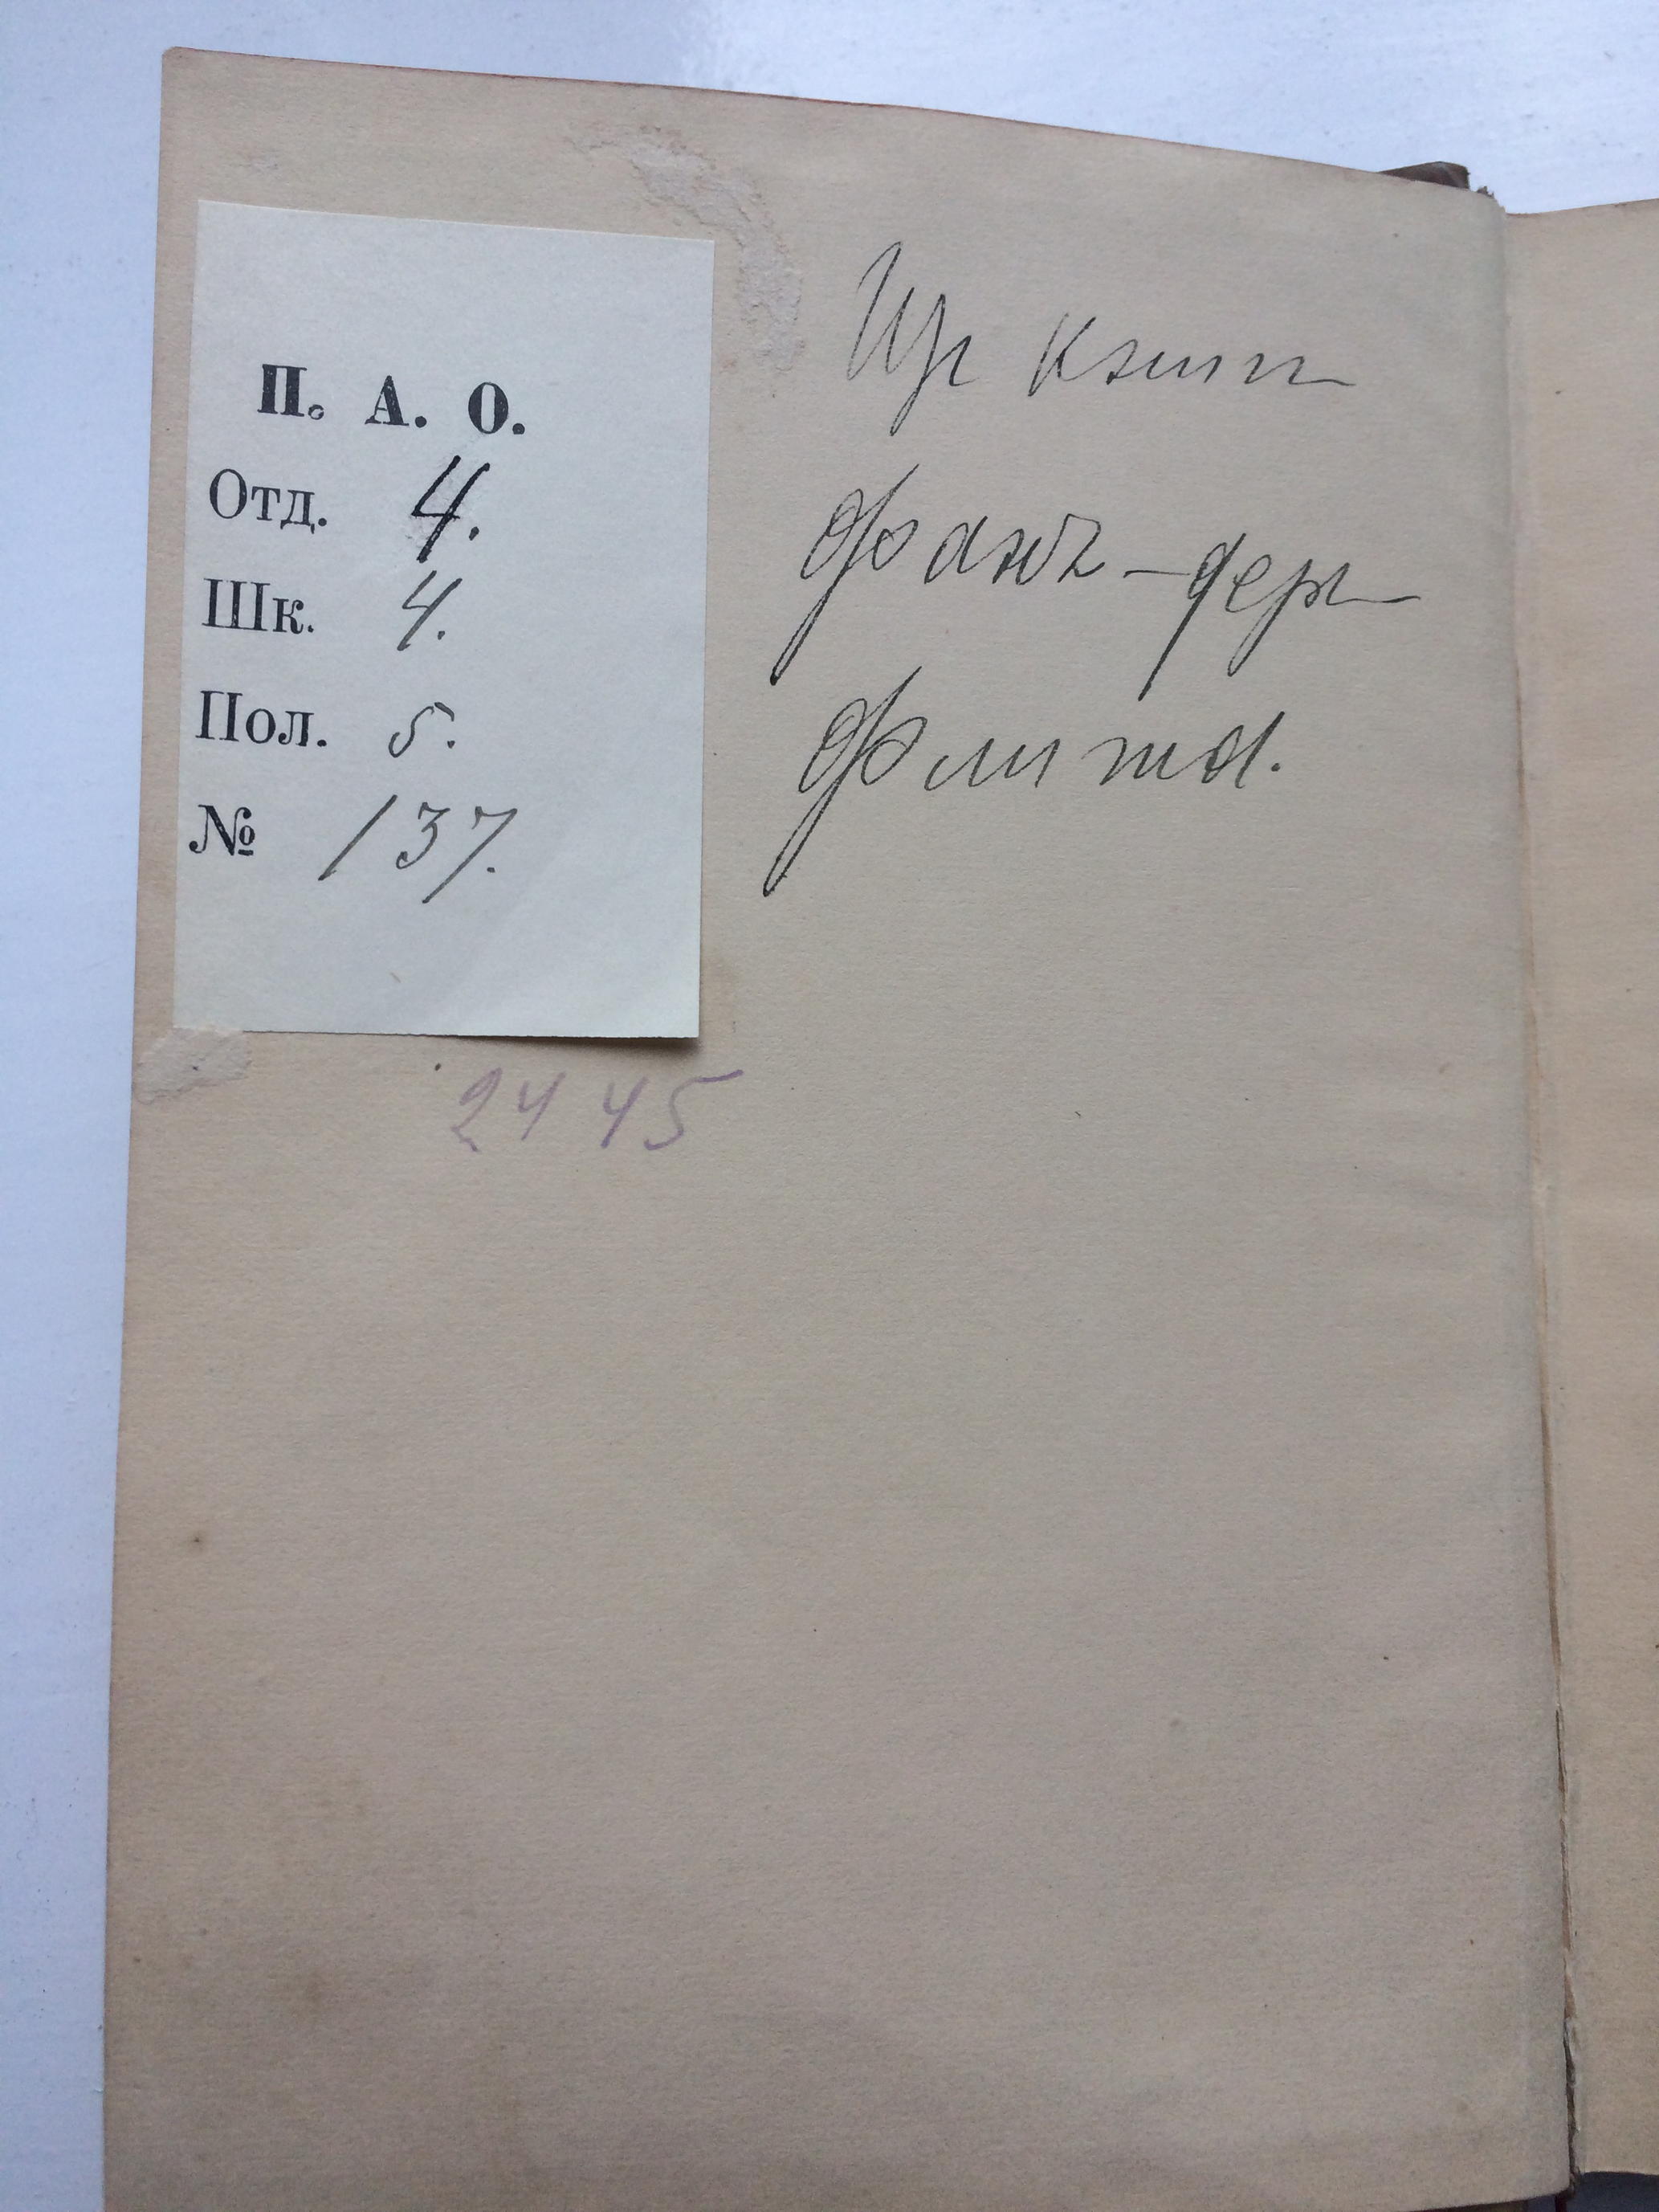 П. А. О.
Отд. 4.
Шк. 4.
Пол. 5.
№ 137.
Изъ книгъ
Фанъ-дер
Флита.
2445